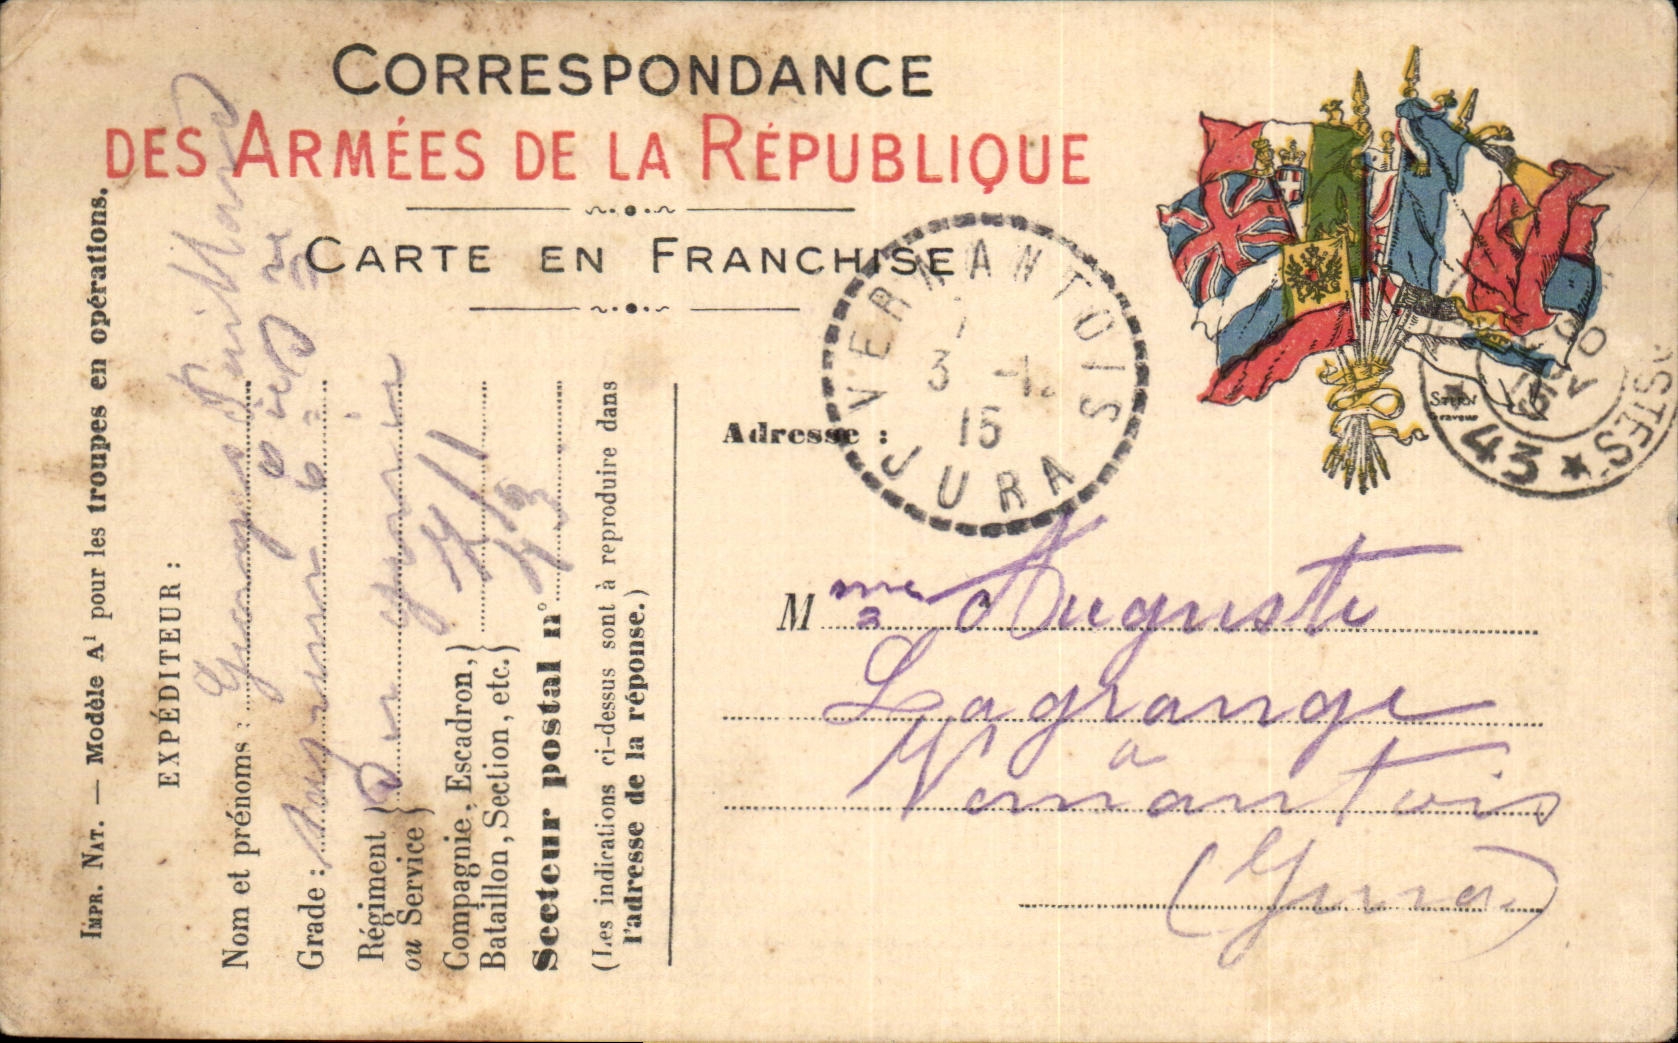 CORRESPONDANCE
DES ARMÉES DE LA RÉPUBLIQUE
CARTE EN FRANCHISE
IMPR. NAT. — Modèle A¹ pour les troupes en opérations.
EXPÉDITEUR :
Nom et prénoms : Georges
Grade :
Régiment
ou Service
Compagnie, Escadron,
Bataillon, Section, etc.
Secteur postal n° 43
(Les indications ci-dessus sont à reproduire dans
l'adresse de la réponse.)
VERNANTOIS
3
15
JURA
Adresse :
Mme Auguste
Lagrange
a
Vernantois
(Jura)
STERN
Graveur
POSTES
43